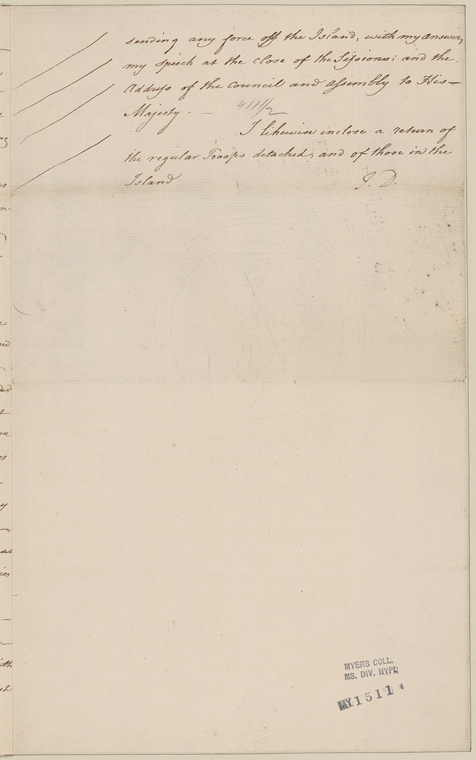 sending any force off the Island, with my answer,
my speech at the close of the Sessions: and the
Address of the Council and assembly to His—
Majesty. —
I likewise inclose a return of
the regular Troops detached, and of those in the
Island
J. D.
MYERS COLL.
MS. DIV. NYPL
1511